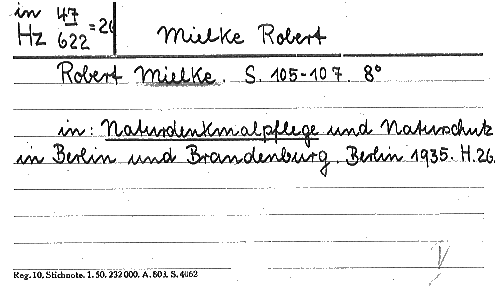 in 47
Hz 622 = 26
Mielke Robert
Robert Mielke. S. 105-107. 8°
in: Naturdenkmalpflege und Naturschutz
in Berlin und Brandenburg. Berlin 1935. H.26.
Reg. 10, Stichnote. 1. 50. 232 000. A. 803. S. 4062